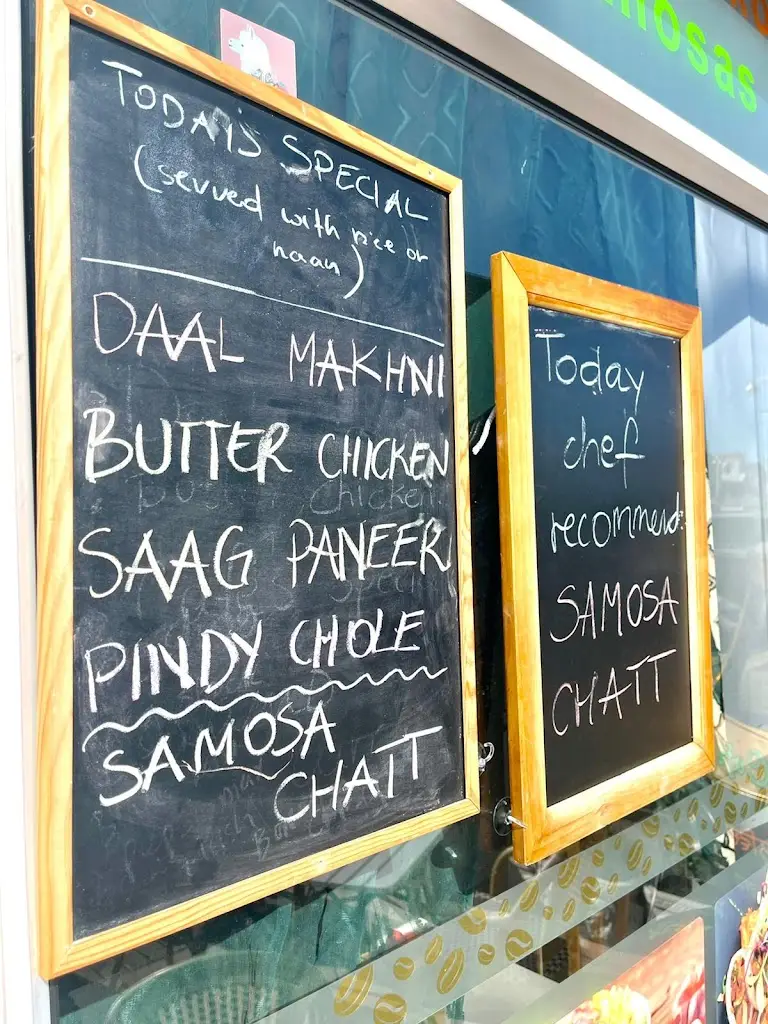 TODAY'S SPECIAL
(served with rice or
naan)
DAAL MAKHNI
BUTTER CHICKEN
SAAG PANEER
PINDY CHOLE
SAMOSA
CHATT
Today
chef
recommend:
SAMOSA
CHATT
mosas